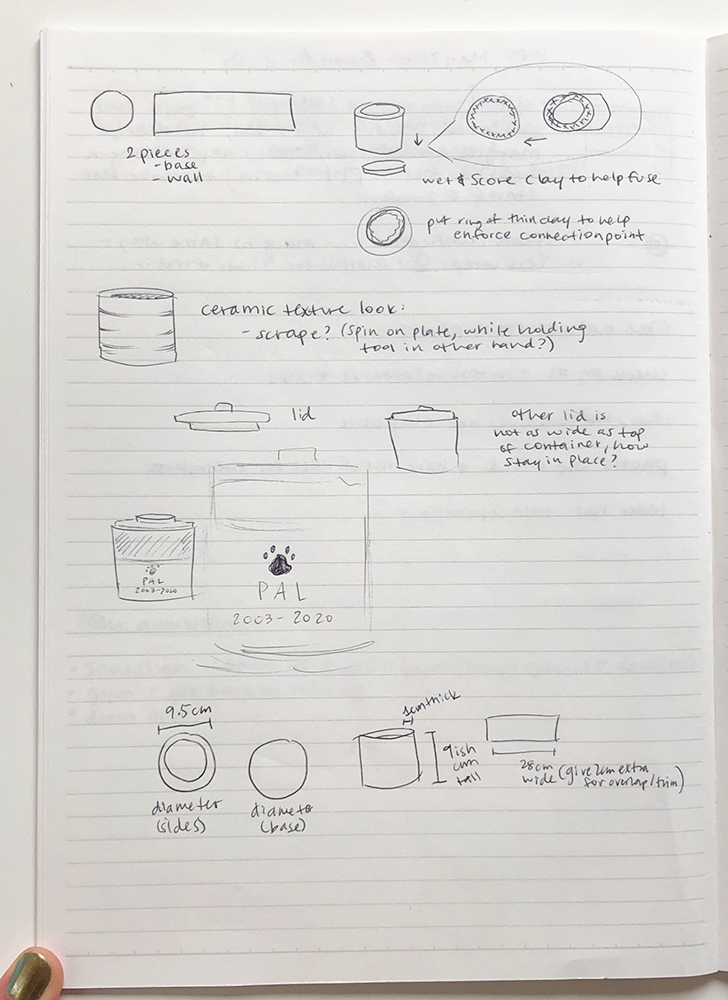 2 pieces
- base
- wall
wet & score clay to help fuse
put ring of thin clay to help
enforce connection point
ceramic texture look:
- scrape? (spin on plate, while holding
tool in other hand?)
lid
other lid is
not as wide as top
of container, how
stay in place?
PAL
2003-2020
PAL
2003-2020
9.5cm
diameter
(sides)
diameter
(base)
1cm thick
9ish
cm
tall
28cm
wide (give 2cm extra
for overlap/trim)